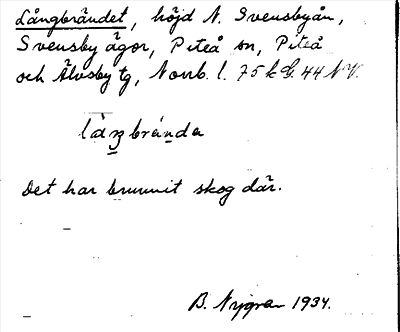 Långbrändet, höjd N. Svensbyån,
Svensby ägor, Piteå sn, Piteå
och Älvsby tg, Norrb. l. 75 k G. 44 NV.
lång brända
Det har brunnit skog där.
B. Nygren 1934.